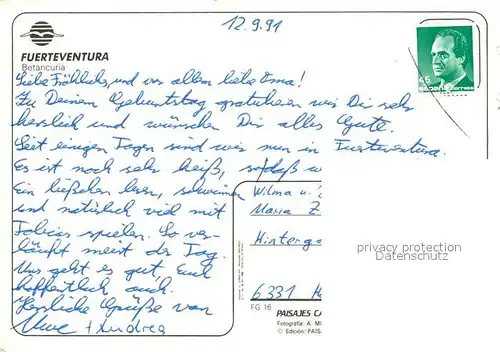 12.9.91
FUERTEVENTURA
Betancuria
Liebe Fröhlichs, und vor allem liebe Oma!
Zu Deinem Geburtstag gratulieren wir Dir sehr
herzlich und wünschen Dir alles Gute.
Seit einigen Tagen sind wir nun in Fuerteventura.
Es ist noch sehr heiß, so daß w
Ein bißchen lesen, schwimmen
und natürlich viel mit
Tobias spielen. So ver-
läuft meist der Tag.
Uns geht es gut, Euch
hoffentlich auch.
Herzliche Grüße von
Uwe + Andrea
45
ESPAÑA CORREOS
Wilma u.
Maria Z
Hinterga
6331 H
privacy protection
Datenschutz
FG 16
PAISAJES CA
Fotografía: A. M
© Edición: PAIS